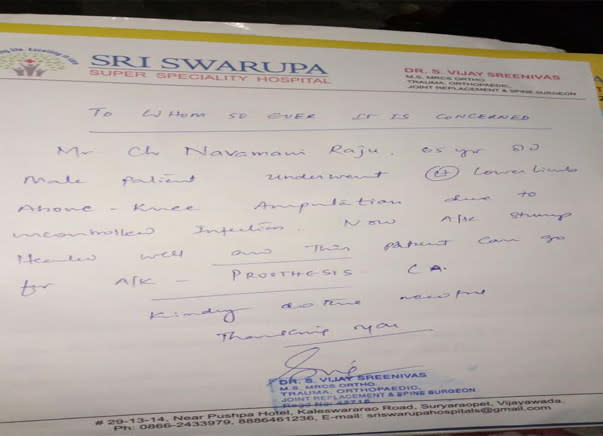 SRI SWARUPA
SUPER SPECIALITY HOSPITAL
DR. S. VIJAY SREENIVAS
M.S. MRCS ORTHO
TRAUMA, ORTHOPAEDIC,
JOINT REPLACEMENT & SPINE SURGEON
TO WHOM SO EVER IT IS CONCERNED
Mr Ch Navamani Raju. 65 yr old
Male patient underwent Lower Limb
Above-Knee Amputation due to
uncontrolled Infection. Now A/K Stump
Healed well and This patient can go
for A/K - PROSTHESIS
Kindly do the
Thanking you
DR. S. VIJAY SREENIVAS
M.S. MRCS ORTHO.
TRAUMA, ORTHOPAEDIC,
JOINT REPLACEMENT & SPINE SURGEON
# 29-13-14, Near Pushpa Hotel, Kaleswararao Road, Suryaraopet, Vijayawada.
Ph: 0866-2433979, 8886461236, E-mail: sriswarupahospitals@gmail.com